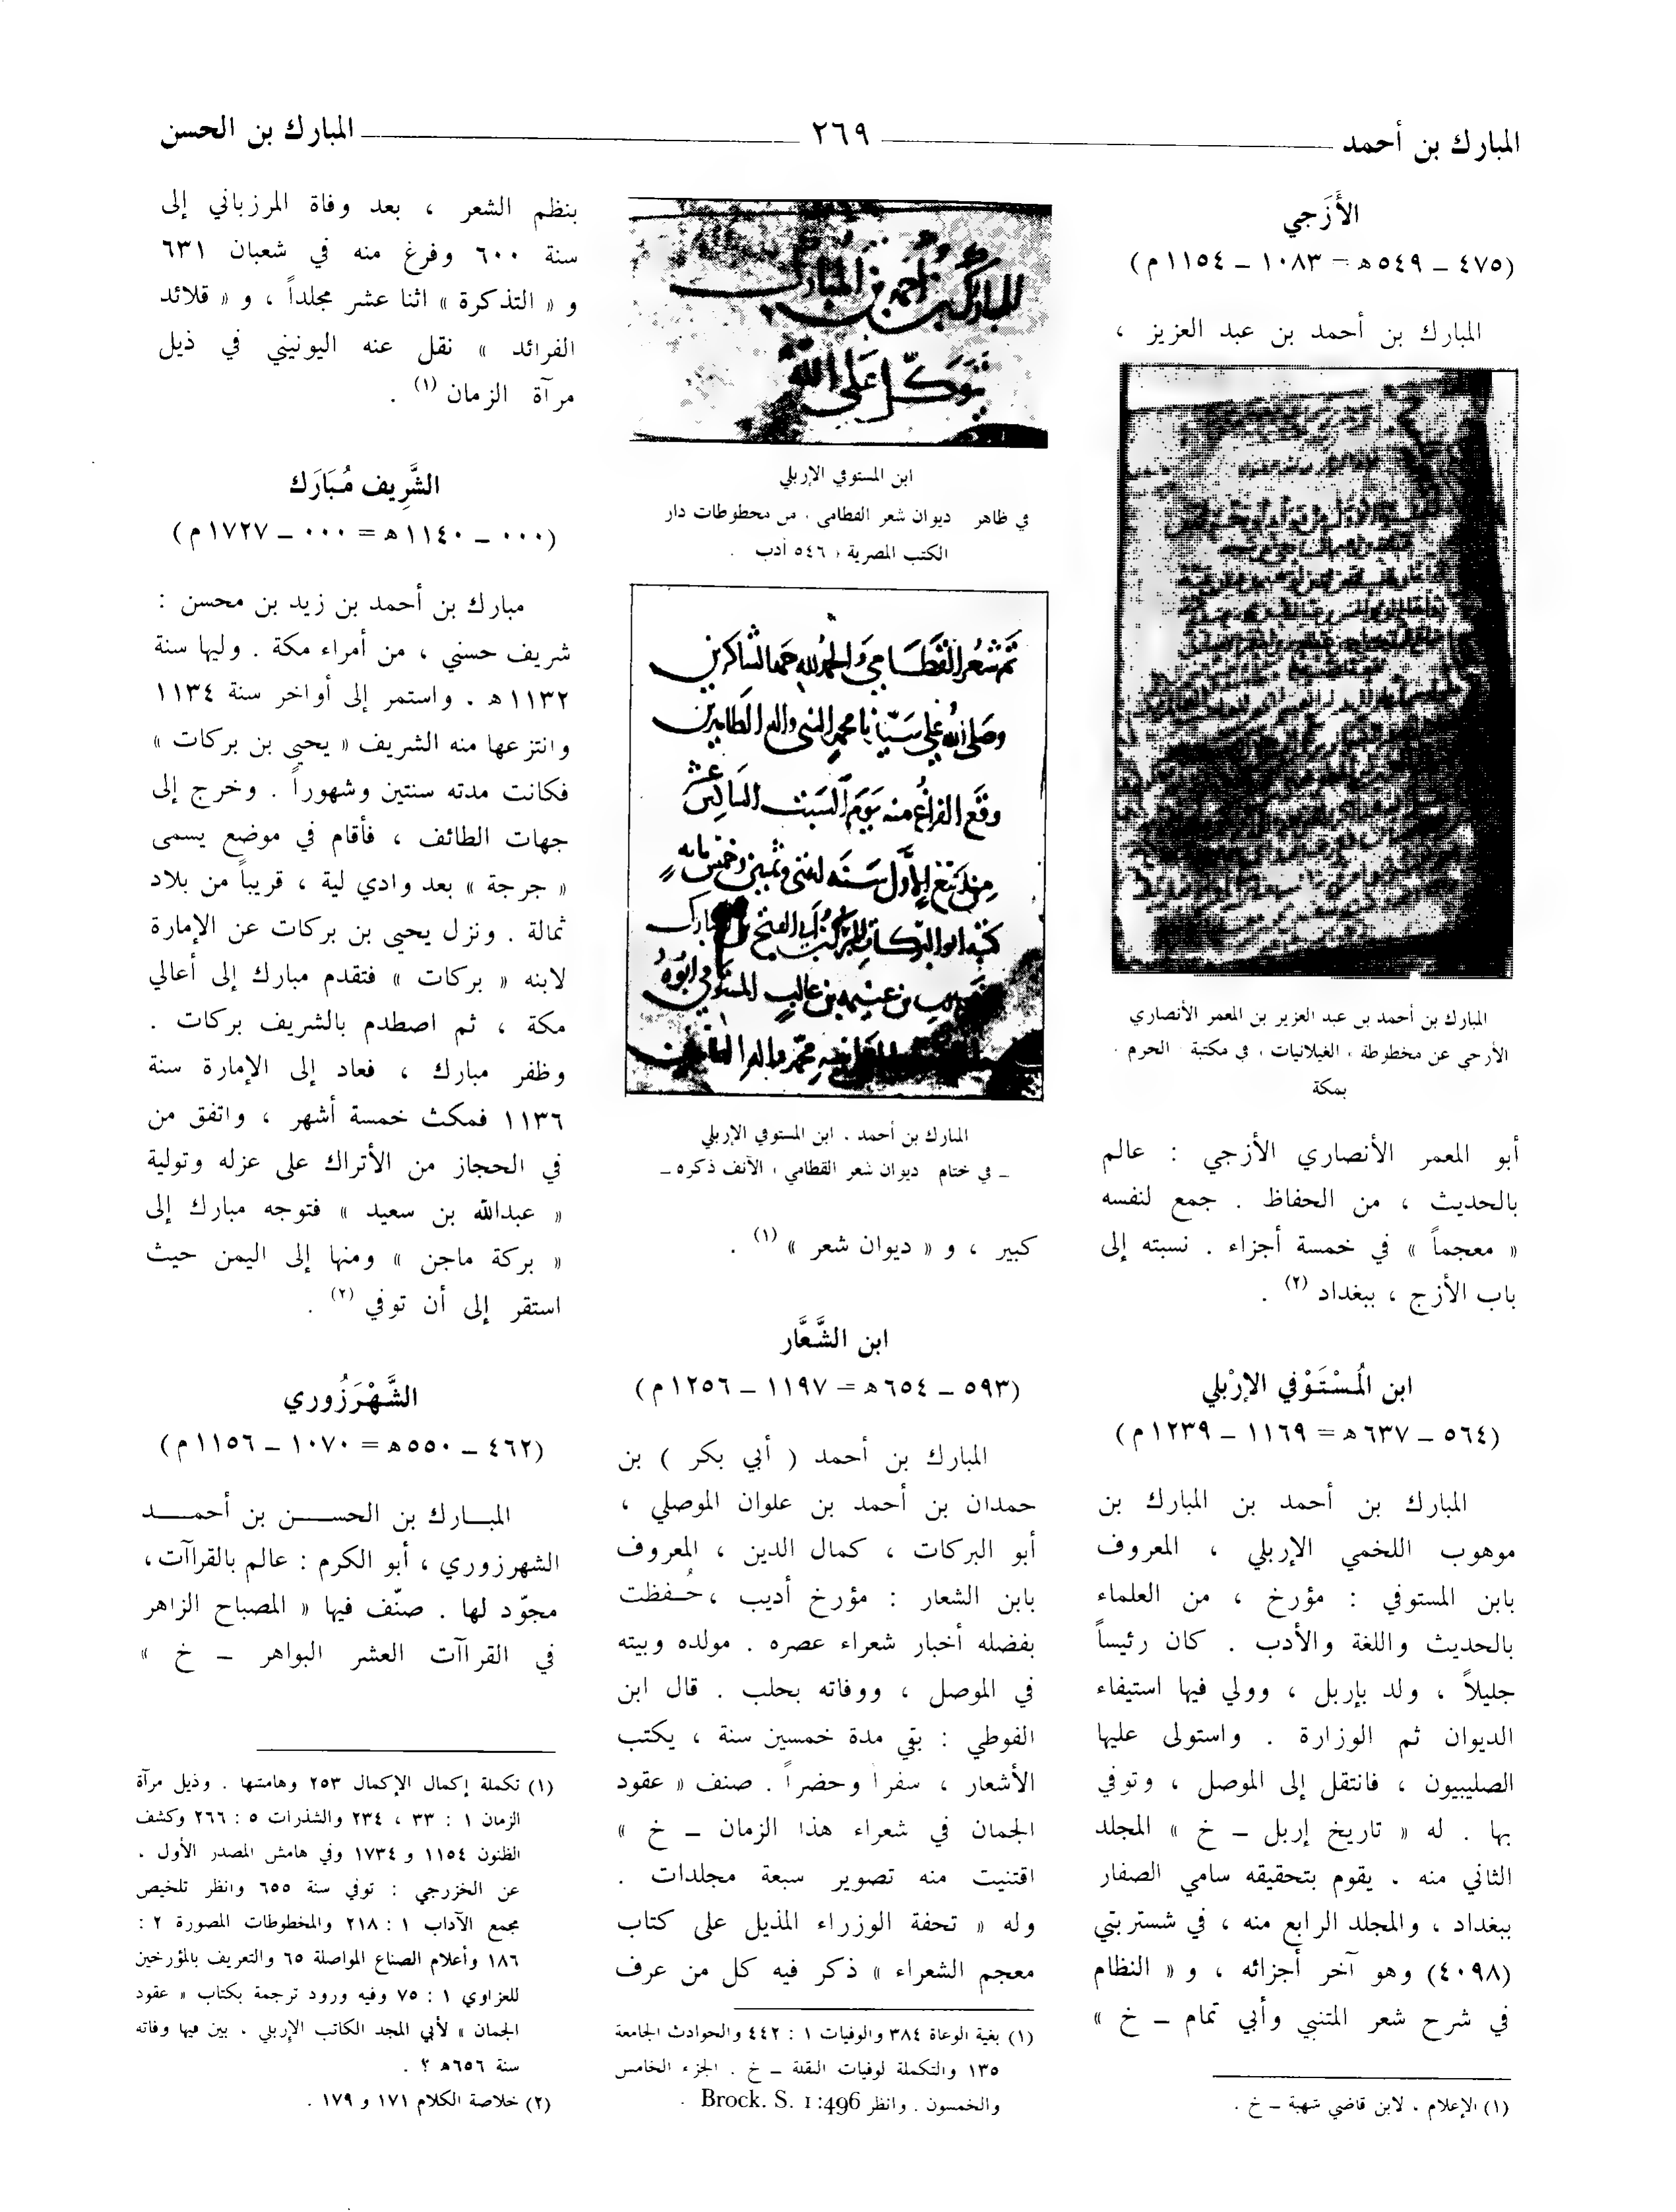 المبارك بن أحمد
٢٦٩
المبارك بن الحسن
الأَزَجي
(٤٧٥ ـ ٥٤٩ هـ = ١٠٨٣ ـ ١١٥٤ م)
المبارك بن أحمد بن عبد العزيز ،
المبارك بن أحمد بن عبد العزيز بن المعمر الأنصاري
الأزجي عن مخطوطة ، الغيلانيات ، في مكتبة الحرم .
بمكة
أبو المعمر الأنصاري الأزجي : عالم
بالحديث ، من الحفاظ . جمع لنفسه
« معجماً » في خمسة أجزاء . نسبته إلى
باب الأزج ، ببغداد (٢) .
ابن المُسْتَوْفي الإرْبلي
(٥٦٤ ـ ٦٣٧ هـ = ١١٦٩ ـ ١٢٣٩ م)
المبارك بن أحمد بن المبارك بن
موهوب اللخمي الإربلي ، المعروف
بابن المستوفي : مؤرخ ، من العلماء
بالحديث واللغة والأدب . كان رئيساً
جليلاً ، ولد بإربل ، وولي فيها استيفاء
الديوان ثم الوزارة . واستولى عليها
الصليبيون ، فانتقل إلى الموصل ، وتوفي
بها . له « تاريخ إربل ـ خ » المجلد
الثاني منه . يقوم بتحقيقه سامي الصفار
ببغداد ، والمجلد الرابع منه ، في شستربتي
(٤٠٩٨) وهو آخر أجزائه ، و « النظام
في شرح شعر المتنبي وأبي تمام ـ خ »
(١) الإعلام ، لابن قاضي شهبة ـ خ .
المبارك بن أحمد بن المبارك
توكل على الله
ابن المستوفي الإربلي
في ظاهر ديوان شعر القطامي ، من مخطوطات دار
الكتب المصرية ، ٥٤٦ أدب .
تم شعر القطامي والحمد لله حمد الشاكرين
وصلى الله على سيدنا محمد النبي واله الطاهرين
وقع الفراغ منه يوم السبت السادس عشر
من ربيع الأول سنة اثنتي وثمنين وخمس مايه
كتبه ابو البركات المبارك بن أبي الفتح المبارك
بن غالب المستوفي
المبارك بن أحمد . ابن المستوفي الإربلي
ـ في ختام ديوان شعر القطامي ، الآنف ذكره ـ
كبير ، و « ديوان شعر » (١) .
ابن الشَّعَّار
(٥٩٣ ـ ٦٥٤ هـ = ١١٩٧ ـ ١٢٥٦ م)
المبارك بن أحمد ( أبي بكر ) بن
حمدان بن أحمد بن علوان الموصلي ،
أبو البركات ، كمال الدين ، المعروف
بابن الشعار : مؤرخ أديب ، حُفظت
بفضله أخبار شعراء عصره . مولده وبيته
في الموصل ، ووفاته بحلب . قال ابن
الفوطي : بقي مدة خمسين سنة ، يكتب
الأشعار ، سفراً وحضراً . صنف « عقود
الجمان في شعراء هذا الزمان ـ خ »
اقتنيت منه تصوير سبعة مجلدات .
وله « تحفة الوزراء المذيل على كتاب
معجم الشعراء » ذكر فيه كل من عرف
(١) بغية الوعاة ٣٨٤ والوفيات ١ : ٤٤٢ والحوادث الجامعة
١٣٥ والتكملة لوفيات النقلة ـ خ . الجزء الخامس
والخمسون . وانظر Brock. S. 1:496 .
بنظم الشعر ، بعد وفاة المرزباني إلى
سنة ٦٠٠ وفرغ منه في شعبان ٦٣١
و « التذكرة » اثنا عشر مجلداً ، و « قلائد
الفرائد » نقل عنه اليونيني في ذيل
مرآة الزمان (١) .
الشَّرِيف مُبَارَك
(٠٠٠ ـ ١١٤٠ هـ = ٠٠٠ ـ ١٧٢٧ م)
مبارك بن أحمد بن زيد بن محسن :
شريف حسني ، من أمراء مكة . وليها سنة
١١٣٢ هـ . واستمر إلى أواخر سنة ١١٣٤
وانتزعها منه الشريف « يحيى بن بركات »
فكانت مدته سنتين وشهوراً . وخرج إلى
جهات الطائف ، فأقام في موضع يسمى
« جرجة » بعد وادي لية ، قريباً من بلاد
ثمالة . ونزل يحيى بن بركات عن الإمارة
لابنه « بركات » فتقدم مبارك إلى أعالي
مكة ، ثم اصطدم بالشريف بركات .
وظفر مبارك ، فعاد إلى الإمارة سنة
١١٣٦ فمكث خمسة أشهر ، واتفق من
في الحجاز من الأتراك على عزله وتولية
« عبدالله بن سعيد » فتوجه مبارك إلى
« بركة ماجن » ومنها إلى اليمن حيث
استقر إلى أن توفي (٢) .
الشَّهْرَزُوري
(٤٦٢ ـ ٥٥٠ هـ = ١٠٧٠ ـ ١١٥٦ م)
المبـارك بن الحســن بن أحمــد
الشهرزوري ، أبو الكرم : عالم بالقراآت ،
مجوّد لها . صنّف فيها « المصباح الزاهر
في القراآت العشر البواهر ـ خ »
(١) تكملة إكمال الإكمال ٢٥٣ وهامشها . وذيل مرآة
الزمان ١ : ٣٣ ، ٢٣٤ والشذرات ٥ : ٢٦٦ وكشف
الظنون ١١٥٤ و ١٧٣٤ وفي هامش المصدر الأول .
عن الخزرجي : توفي سنة ٦٥٥ وانظر تلخيص
مجمع الآداب ١ : ٢١٨ والمخطوطات المصورة ٢ :
١٨٦ وأعلام الصناع المواصلة ٦٥ والتعريف بالمؤرخين
للعزاوي ١ : ٧٥ وفيه ورود ترجمة بكتاب « عقود
الجمان » لأبي المجد الكاتب الإربلي . بين فيها وفاته
سنة ٦٥٦ هـ ؟ .
(٢) خلاصة الكلام ١٧١ و ١٧٩ .